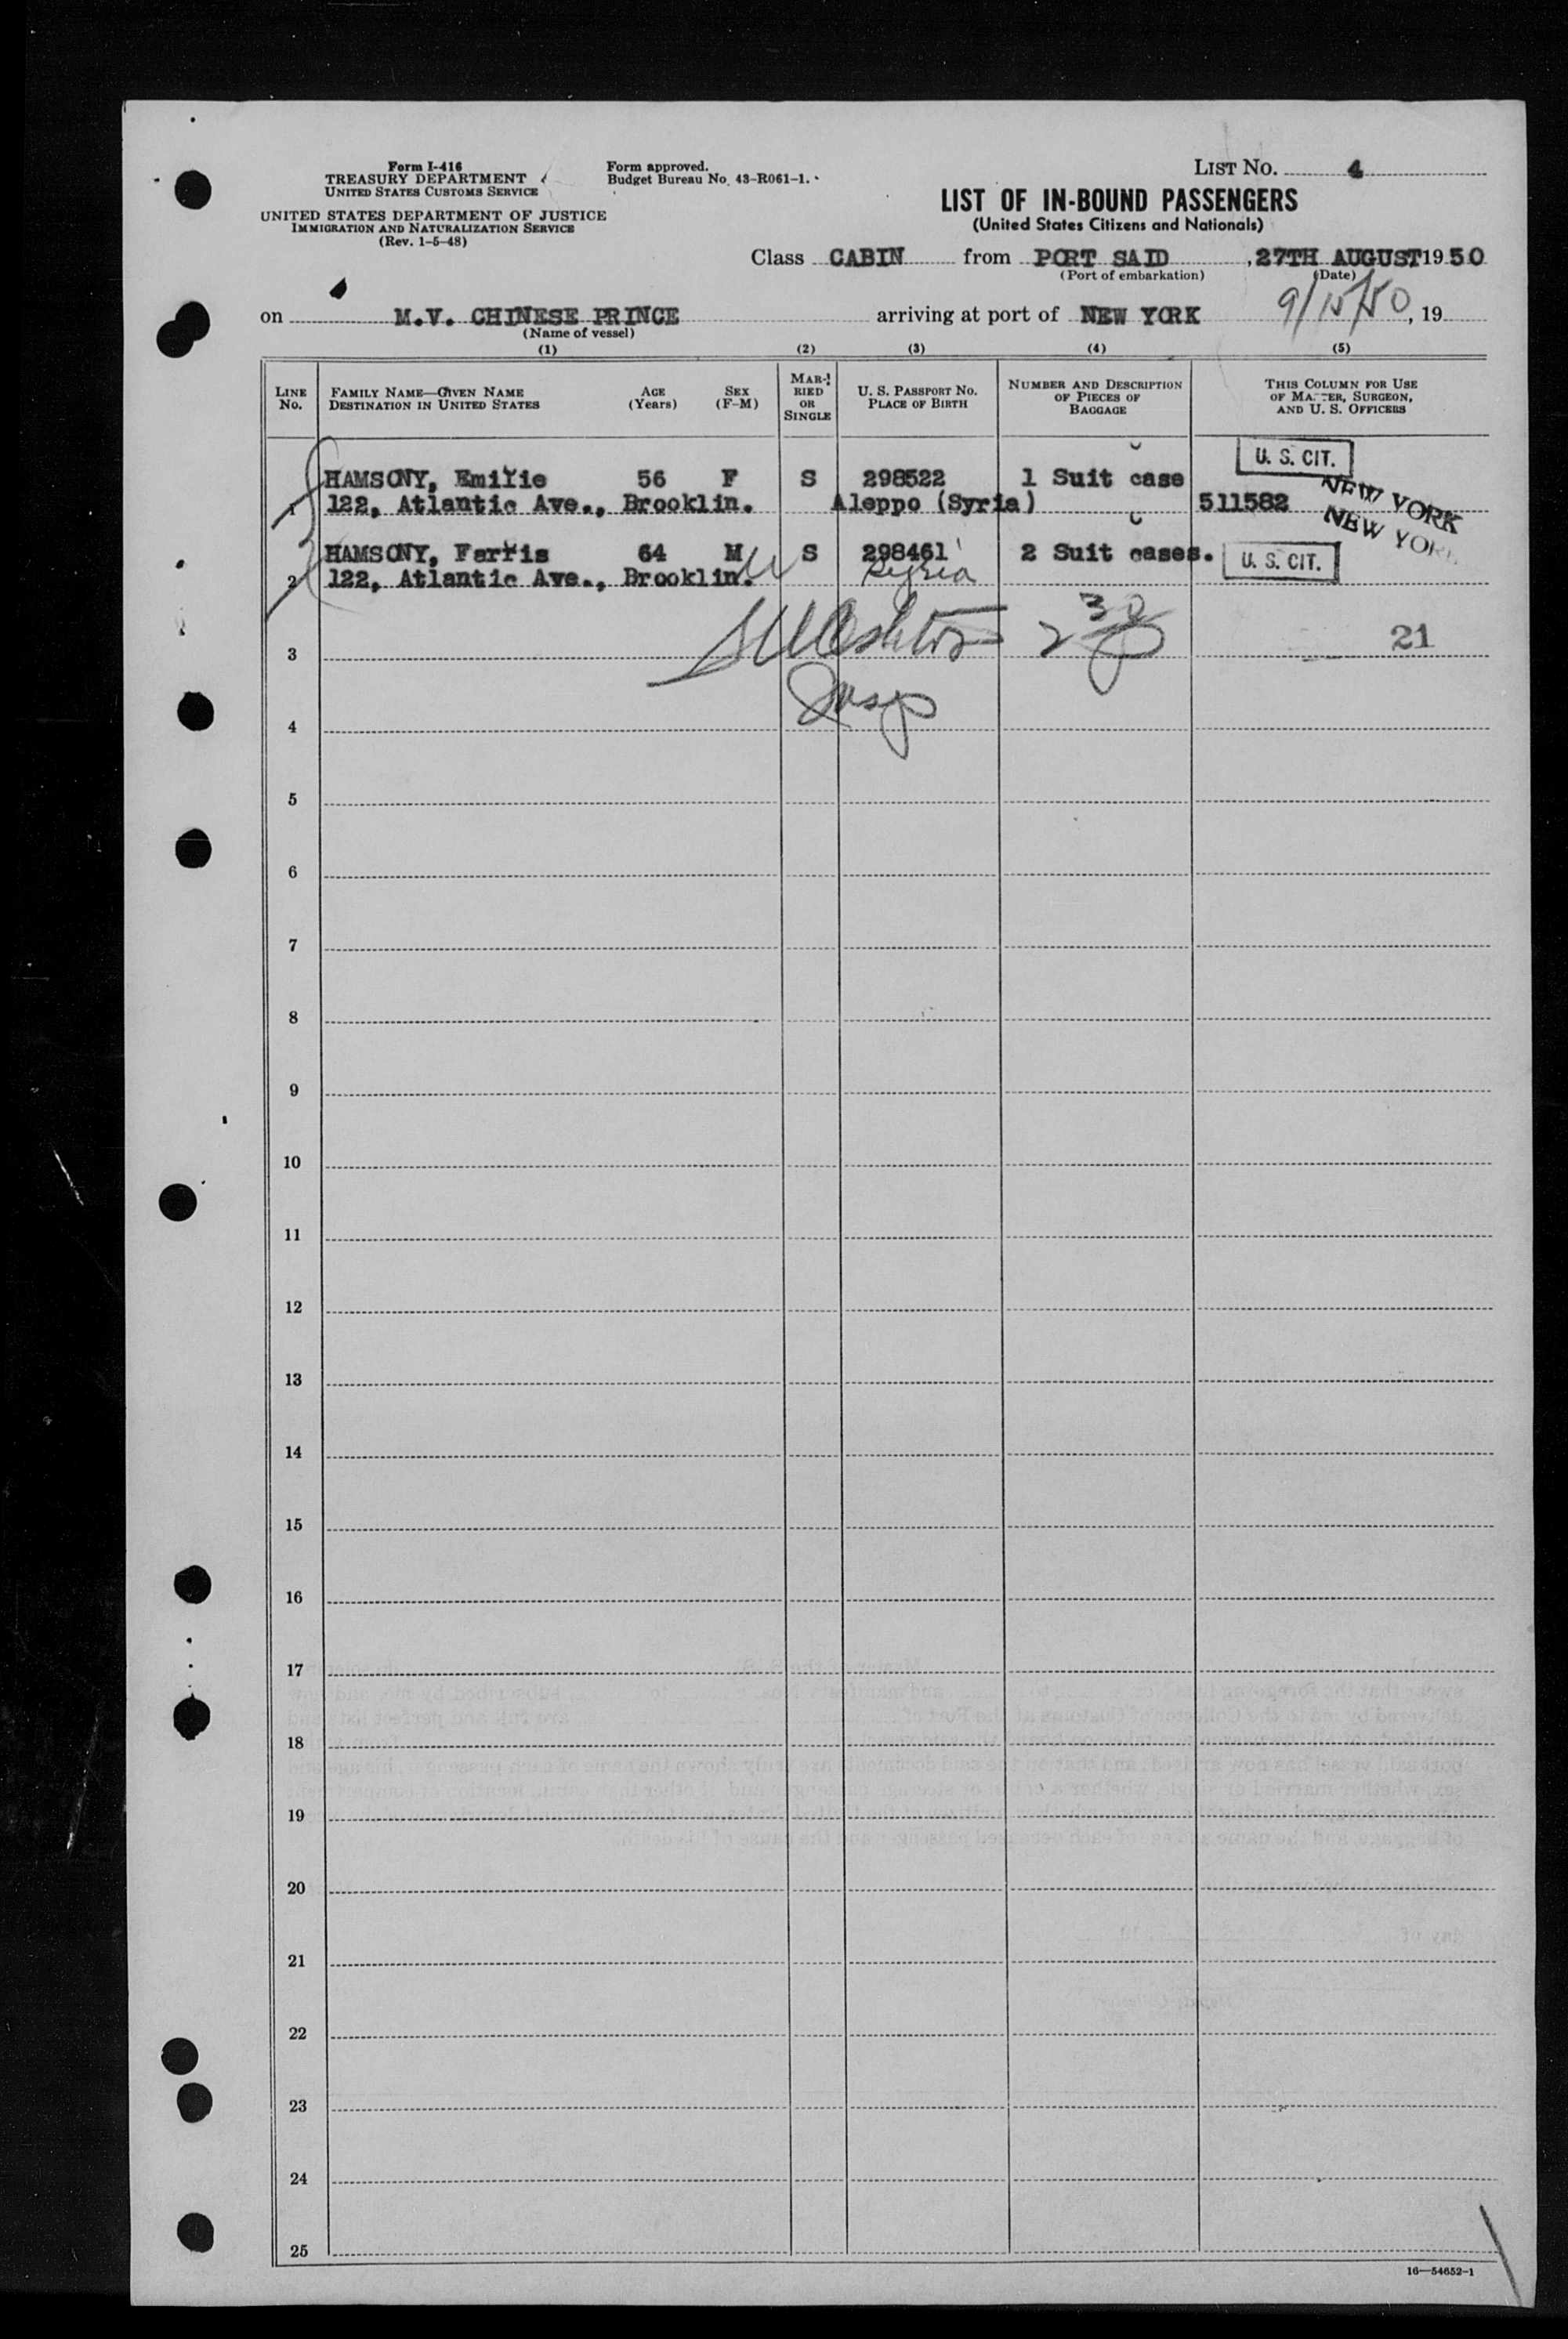 Form I-416
TREASURY DEPARTMENT
UNITED STATES CUSTOMS SERVICE
UNITED STATES DEPARTMENT OF JUSTICE
IMMIGRATION AND NATURALIZATION SERVICE
(Rev. 1-5-48)
Form approved.
Budget Bureau No. 43-R061-1.
LIST NO. 4
LIST OF IN-BOUND PASSENGERS
(United States Citizens and Nationals)
Class CABIN from PORT SAID, 27TH AUGUST 1950
(Port of embarkation) (Date)
on M.V. CHINESE PRINCE arriving at port of NEW YORK 9/15/50, 19
(Name of vessel)
(1) (2) (3) (4) (5)
LINE No.
FAMILY NAME—GIVEN NAME
DESTINATION IN UNITED STATES
AGE (Years)
SEX (F-M)
MARRIED OR SINGLE
U. S. PASSPORT NO.
PLACE OF BIRTH
NUMBER AND DESCRIPTION OF PIECES OF BAGGAGE
THIS COLUMN FOR USE OF MASTER, SURGEON, AND U. S. OFFICERS
HAMSONY, Emilie 56 F S 298522 1 Suit case U. S. CIT.
1 122, Atlantic Ave., Brooklin. Aleppo (Syria) 511582 NEW YORK
NEW YORK
HAMSONY, Ferris 64 M S 298461 2 Suit cases. U. S. CIT.
2 122, Atlantic Ave., Brooklin. Syria
3 2 30 21
Insp
4
5
6
7
8
9
10
11
12
13
14
15
16
17
18
19
20
21
22
23
24
25
16—54652-1